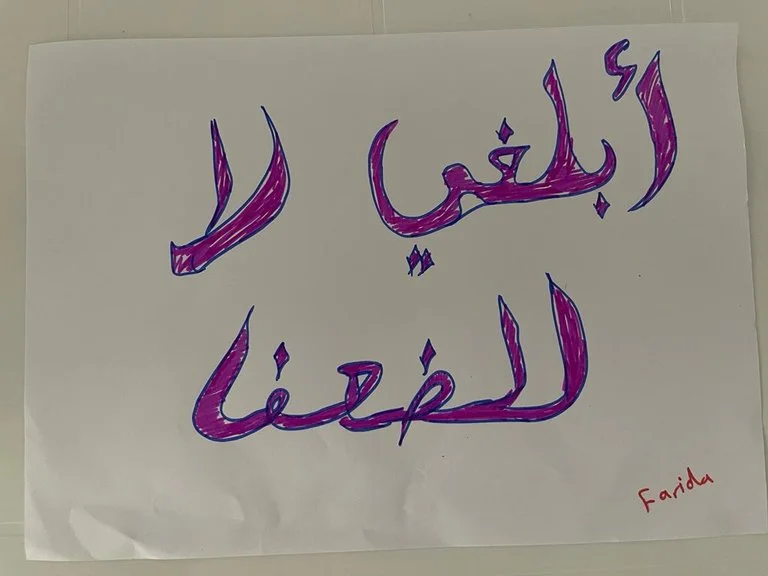 أبلغي لا
للضعفا
Farida